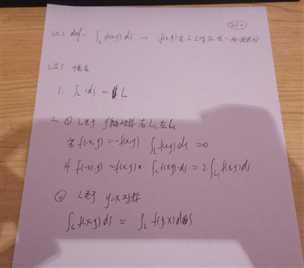 (一) def. ∫_L f(x,y)ds → f(x,y)在L上
(二) 性质
1. ∫_L 1·ds = L
2. ① L关于y轴对称 右L₁左L₂
若 f(-x,y)=-f(x,y) ∫_L f(x,y)ds = 0
若 f(-x,y)=f(x,y) ∫_L f(x,y)ds = 2∫_L₁ f(x,y)ds
② L关于 y=x对称
∫_L f(x,y)ds = ∫_L f(y,x)ds